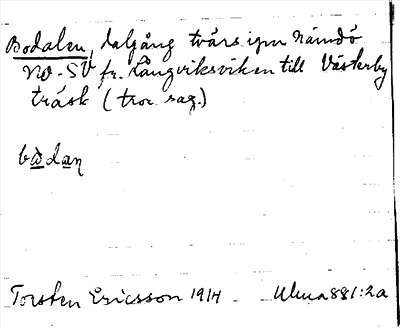 Bodalen, dalgång tvärs igm Nämdö
NO-SV fr. Långviksviken till Västerby
träsk (troc. sag.)
bωdaņ
Torsten Ericsson 1914 Ulma 881:2a